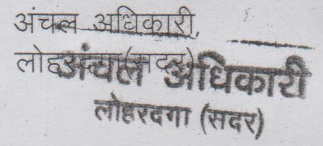 अंचल अधिकारी,
लोहरदगा (सदर)
अंचल अधिकारी
लोहरदगा (सदर)